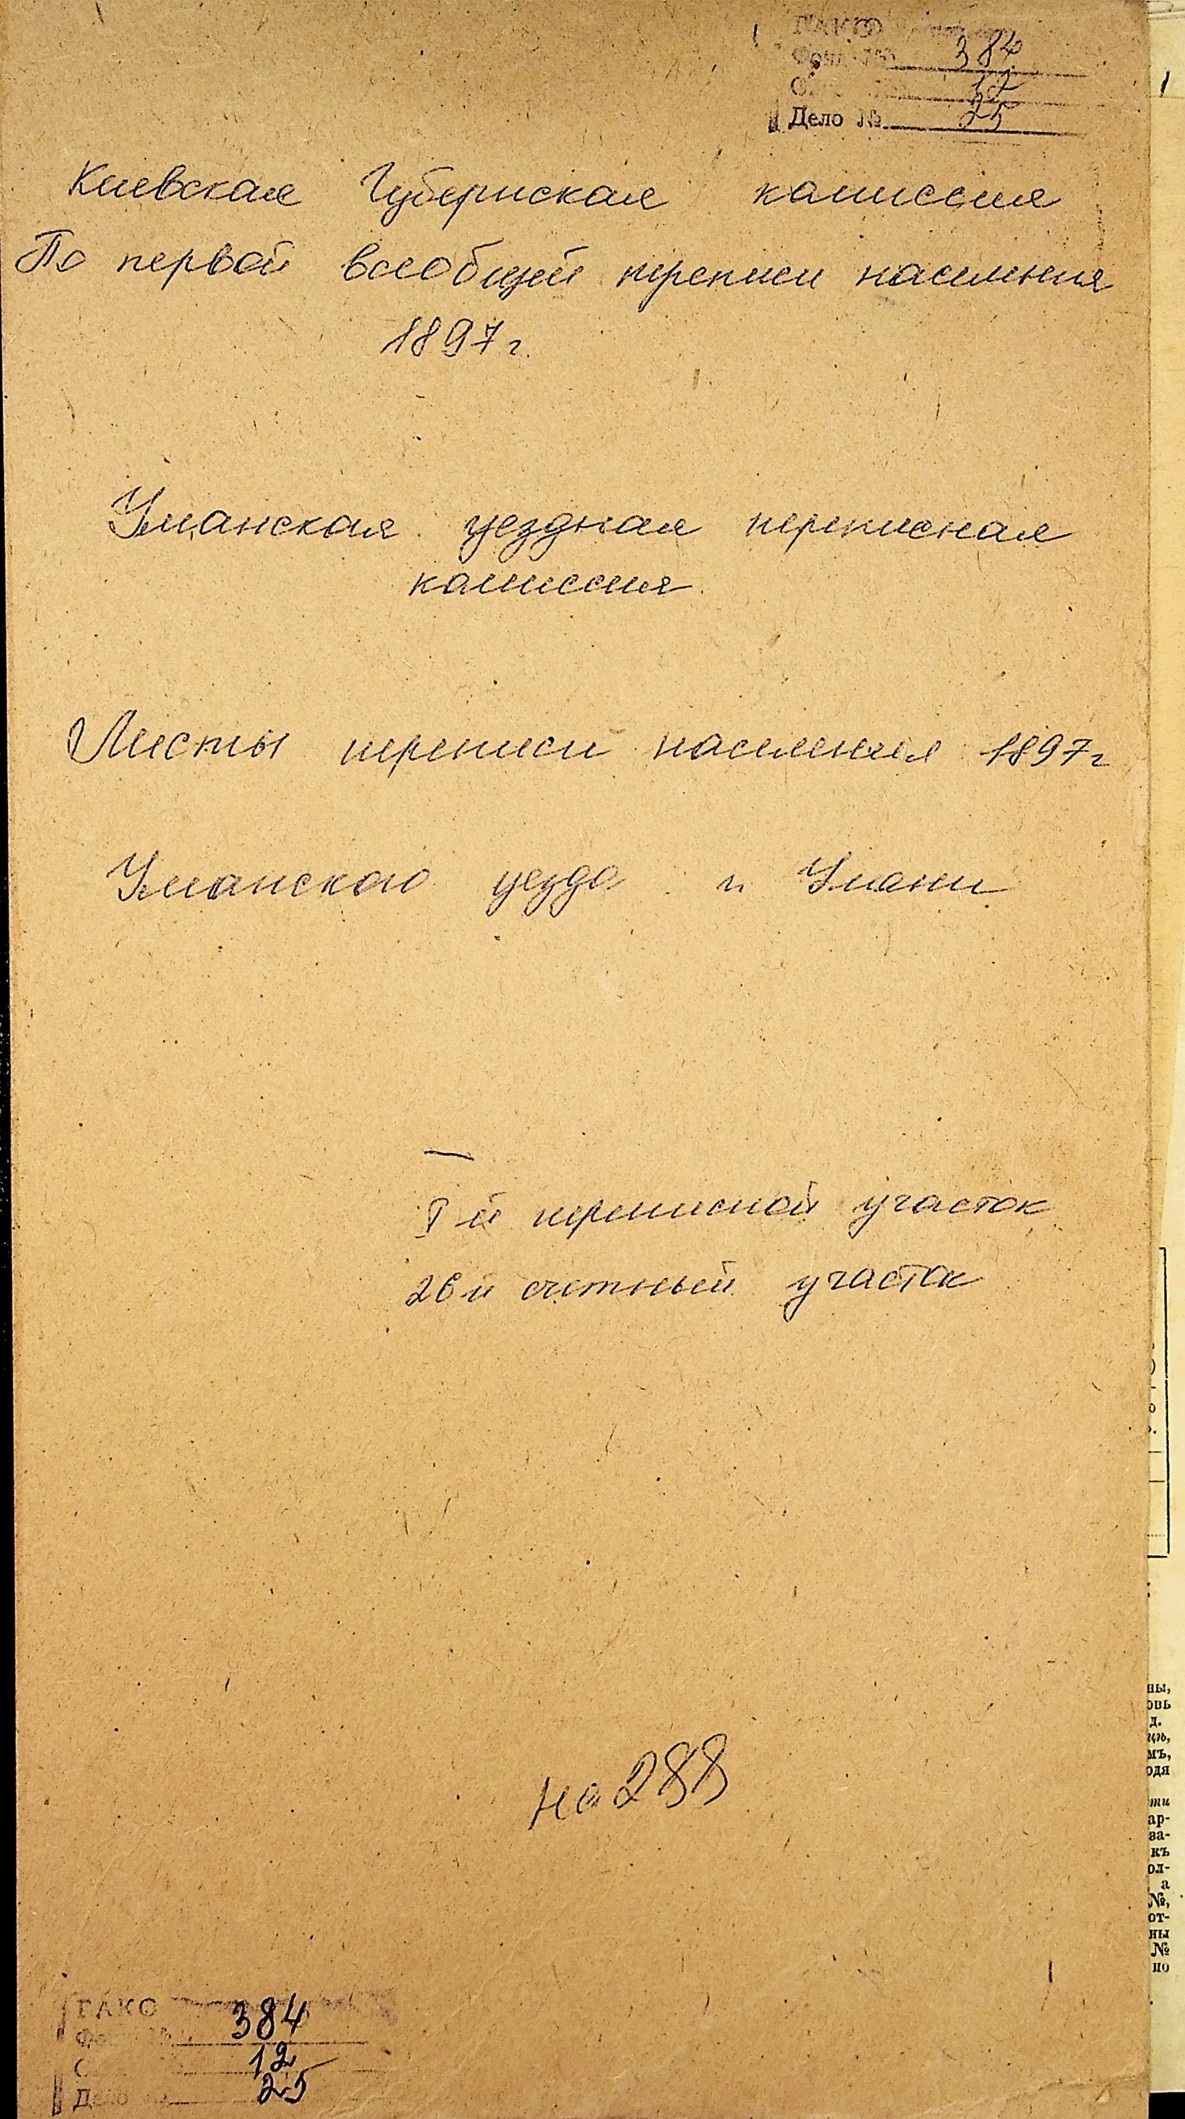 ГАКО
Фонд № 384
12
Дело № 25
1
Киевская Губернская комиссия
По первой всеобщей переписи населения
1897 г.
Уманская уездная переписная
комиссия.
Листы переписи населения 1897 г
Уманского уезда г. Умани
I й перепиcной участок
26 й счетный участок
на 288
ны,
овь
д.
мъ,
одя
ти
ар-
ва-
къ
ол-
а
№,
от-
ны
№
но
ГАКО
Фонд № 384
12
Дело № 25